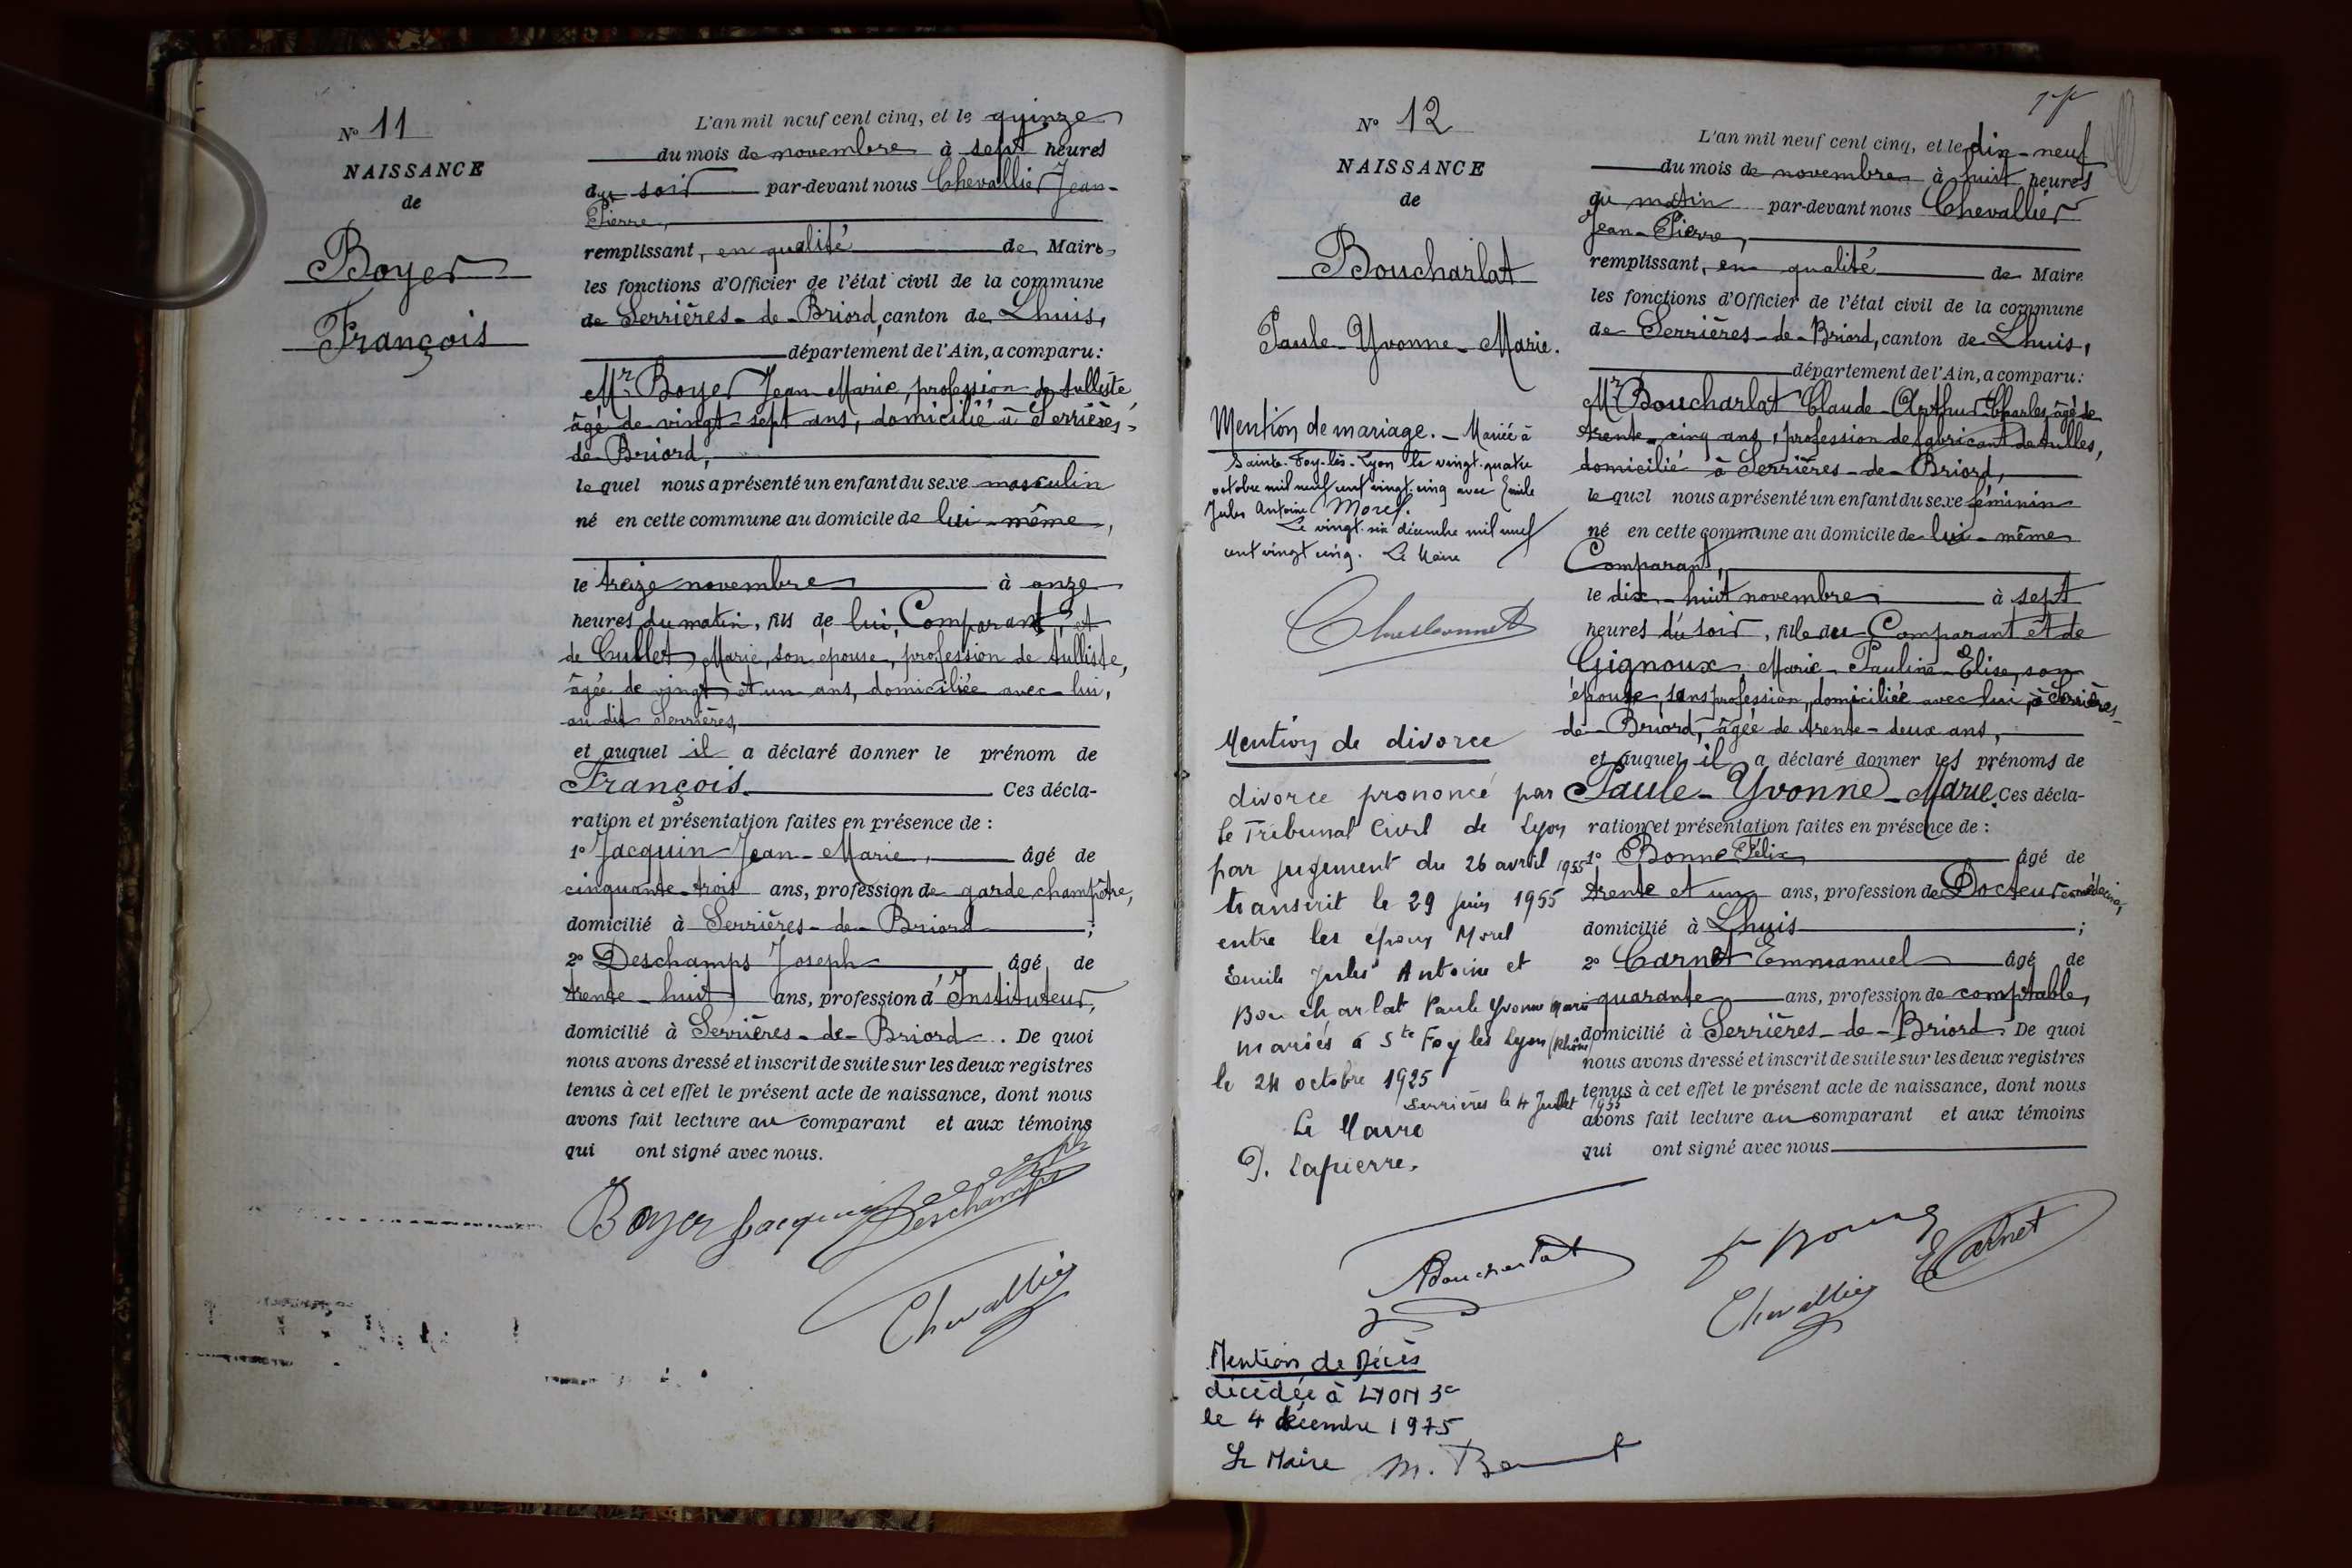 N° 11
NAISSANCE
de
Boyer
François
L'an mil neuf cent cinq, et le quinze
du mois de novembre à sept heures
du soir par-devant nous Chevallier Jean-
Pierre,
remplissant, en qualité de Maire,
les fonctions d'Officier de l'état civil de la commune
de Serrières-de-Briord, canton de Lhuis,
département de l'Ain, a comparu :
Mr Boyer Jean-Marie, profession de tulliste,
âgé de vingt-sept ans, domicilié à Serrières-
de-Briord,
lequel nous a présenté un enfant du sexe masculin
né en cette commune au domicile de lui-même,
le treize novembre à onze
heures du matin, fils de lui, Comparant, et
de Cullet, Marie, son épouse, profession de tulliste,
âgée de vingt et un ans, domiciliée avec lui,
au dit Serrières,
et auquel il a déclaré donner le prénom de
François. Ces décla-
ration et présentation faites en présence de :
1° Jacquin Jean-Marie, âgé de
cinquante-trois ans, profession de garde champêtre,
domicilié à Serrières-de-Briord ;
2° Deschamps Joseph âgé de
trente-huit ans, profession d'Instituteur,
domicilié à Serrières-de-Briord. De quoi
nous avons dressé et inscrit de suite sur les deux registres
tenus à cet effet le présent acte de naissance, dont nous
avons fait lecture au comparant et aux témoins
qui ont signé avec nous.
Boyer Jacquin Deschamps
Chevallier
N° 12
NAISSANCE
de
Boucharlat
Paule-Yvonne-Marie.
Mention de mariage. - Mariée à
Sainte-Foy-lès-Lyon le vingt-quatre
octobre mil neuf cent vingt-cinq avec Emile
Jules Antoine Morel.
Le vingt-six décembre mil neuf
cent vingt cinq. Le Maire
Mention de divorce
divorce prononcé par
le Tribunal Civil de Lyon
par jugement du 26 avril 1955
transcrit le 29 juin 1955
entre les époux Morel
Emile Jules Antoine et
Boucharlat Paule Yvonne Marie
mariés à Ste Foy les Lyon (Rhône)
le 24 octobre 1925
Serrières le 4 Juillet 1955
Le Maire
P. Lapierre.
L'an mil neuf cent cinq, et le dix-neuf
du mois de novembre à huit heures
du matin par-devant nous Chevallier
Jean-Pierre,
remplissant, en qualité de Maire
les fonctions d'Officier de l'état civil de la commune
de Serrières-de-Briord, canton de Lhuis,
département de l'Ain, a comparu :
Mr Boucharlat Claude-Arthur-Charles, âgé de
trente-cinq ans, profession de fabricant de tulles,
domicilié à Serrières-de-Briord,
lequel nous a présenté un enfant du sexe féminin
né en cette commune au domicile de lui-même
Comparant,
le dix-huit novembre à sept
heures du soir, fille du Comparant et de
Gignoux Marie-Pauline-Elise, son
épouse, sans profession, domiciliée avec lui, à Serrières-
de-Briord, âgée de trente-deux ans,
et auquel il a déclaré donner les prénoms de
Paule-Yvonne-Marie. Ces décla-
ration et présentation faites en présence de :
1° Bonne Félix âgé de
trente et un ans, profession de Docteur en médecine,
domicilié à Lhuis ;
2° Carnet Emmanuel âgé de
quarante ans, profession de comptable,
domicilié à Serrières-de-Briord. De quoi
nous avons dressé et inscrit de suite sur les deux registres
tenus à cet effet le présent acte de naissance, dont nous
avons fait lecture au comparant et aux témoins
qui ont signé avec nous
Boucharlat F Bonne ECarnet
Chevallier
Mention de Décès
décédée à LYON 3e
le 4 décembre 1975
Le Maire